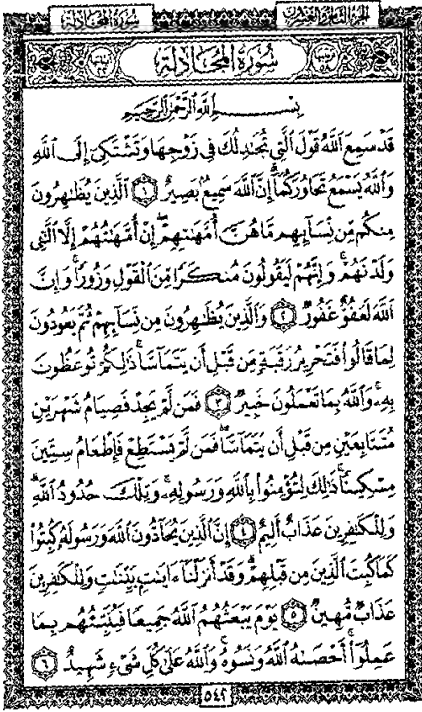 سُورَةُ المُجَادلَة
الجزء الثامن والعشرون
سُورَةُ المُجَادلَة
بِسْمِ ٱللَّهِ ٱلرَّحْمَٰنِ ٱلرَّحِيمِ
قَدْ سَمِعَ ٱللَّهُ قَوْلَ ٱلَّتِى تُجَٰدِلُكَ فِى زَوْجِهَا وَتَشْتَكِىٓ إِلَى ٱللَّهِ
وَٱللَّهُ يَسْمَعُ تَحَاوُرَكُمَآ إِنَّ ٱللَّهَ سَمِيعٌۢ بَصِيرٌ ١ ٱلَّذِينَ يُظَٰهِرُونَ
مِنكُم مِّن نِّسَآئِهِم مَّا هُنَّ أُمَّهَٰتِهِمْ إِنْ أُمَّهَٰتُهُمْ إِلَّا ٱلَّٰٓـِٔى
وَلَدْنَهُمْ وَإِنَّهُمْ لَيَقُولُونَ مُنكَرًا مِّنَ ٱلْقَوْلِ وَزُورًا وَإِنَّ
ٱللَّهَ لَعَفُوٌّ غَفُورٌ ٢ وَٱلَّذِينَ يُظَٰهِرُونَ مِن نِّسَآئِهِمْ ثُمَّ يَعُودُونَ
لِمَا قَالُوا۟ فَتَحْرِيرُ رَقَبَةٍ مِّن قَبْلِ أَن يَتَمَآسَّا ذَٰلِكُمْ تُوعَظُونَ
بِهِۦ وَٱللَّهُ بِمَا تَعْمَلُونَ خَبِيرٌ ٣ فَمَن لَّمْ يَجِدْ فَصِيَامُ شَهْرَيْنِ
مُتَتَابِعَيْنِ مِن قَبْلِ أَن يَتَمَآسَّا فَمَن لَّمْ يَسْتَطِعْ فَإِطْعَامُ سِتِّينَ
مِسْكِينًا ذَٰلِكَ لِتُؤْمِنُوا۟ بِٱللَّهِ وَرَسُولِهِۦ وَتِلْكَ حُدُودُ ٱللَّهِ
وَلِلْكَٰفِرِينَ عَذَابٌ أَلِيمٌ ٤ إِنَّ ٱلَّذِينَ يُحَآدُّونَ ٱللَّهَ وَرَسُولَهُۥ كُبِتُوا۟
كَمَا كُبِتَ ٱلَّذِينَ مِن قَبْلِهِمْ وَقَدْ أَنزَلْنَآ ءَايَٰتٍۭ بَيِّنَٰتٍ وَلِلْكَٰفِرِينَ
عَذَابٌ مُّهِينٌ ٥ يَوْمَ يَبْعَثُهُمُ ٱللَّهُ جَمِيعًا فَيُنَبِّئُهُم بِمَا
عَمِلُوٓا۟ أَحْصَىٰهُ ٱللَّهُ وَنَسُوهُ وَٱللَّهُ عَلَىٰ كُلِّ شَىْءٍ شَهِيدٌ ٦
٥٤٢